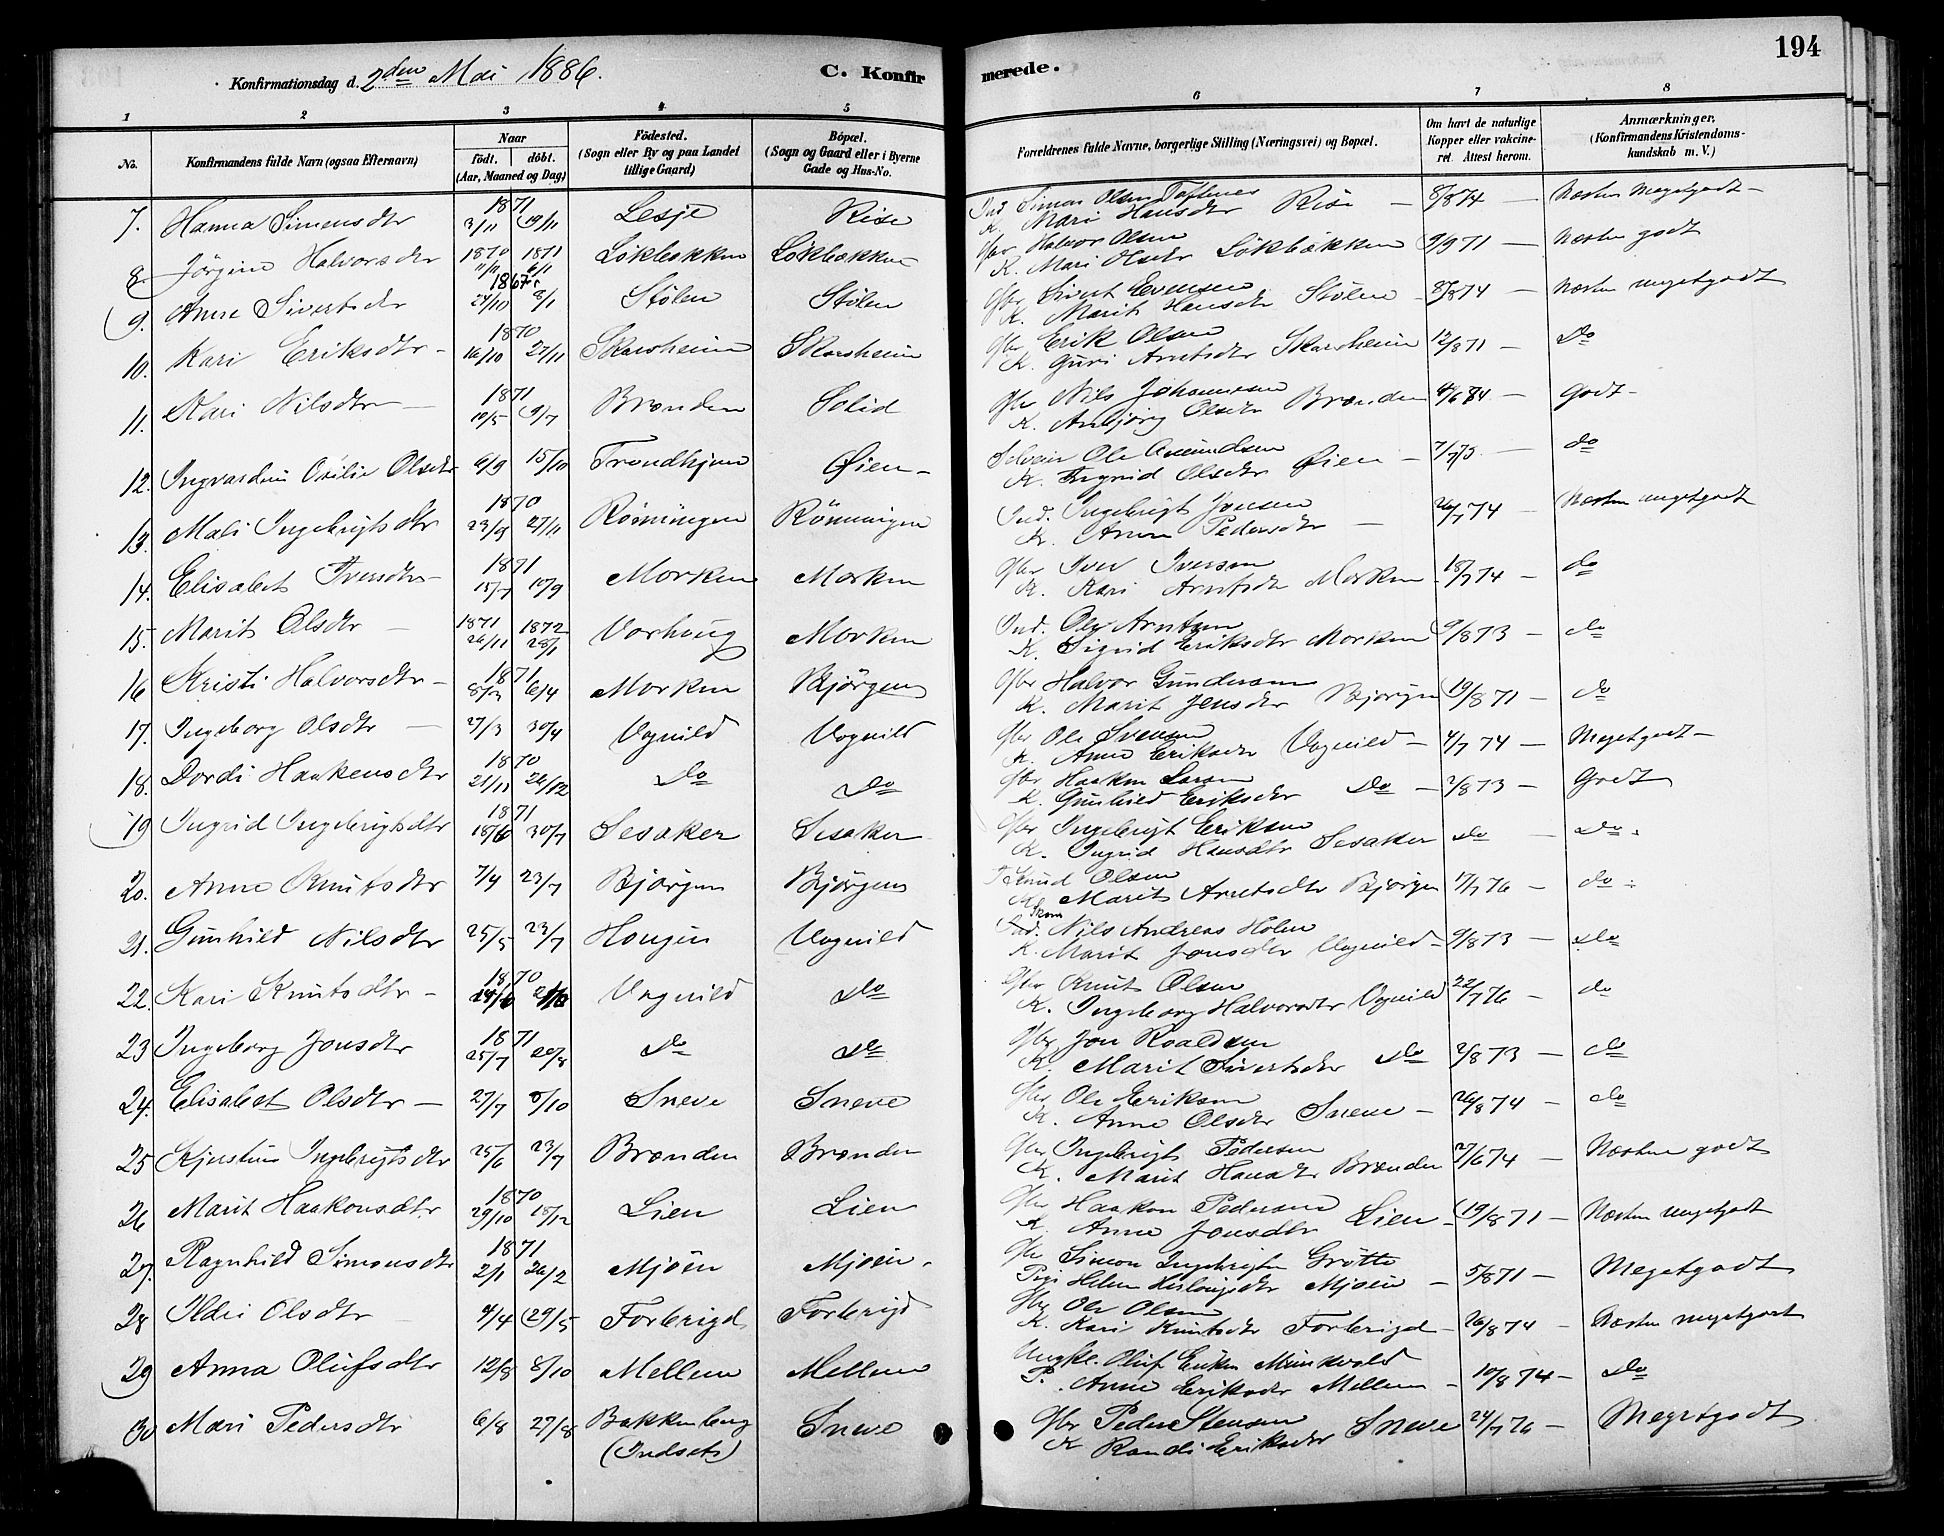 194
Konfirmationsdag d. 2den Mai 1886. C. Konfirmerede.
1 2 3 4 5 6 7 8
No. Konfirmandens fulde Navn (ogsaa Efternavn) Naar födt. döbt. (Aar, Maaned og Dag) Födested. (Sogn eller By og paa Landet tillige Gaard) Bópæl. (Sogn og Gaard eller i Byerne Gade og Hus-No. Forældrenes fulde Navne, borgerlige Stilling (Næringsvei) og Bopæl. Om havt de naturlige Kopper eller vakcineret. Attest herom. Anmærkninger, (Konfirmandens Kristendomskundskab m. V.)
7. Hanna Simensdtr 1871 3/11 19/11 Lesje Rise Ind. Simon Olsen Toftener K. Mari Hansdtr Rise 8/8 74 Næsten megetgodt
8. Jörgine Halvorsdtr 1870 11/11 1871 6/1 Lökbakken Lökbakken Gbr Halvor Olsen K. Mari Olsdtr Lökbækken 9/9 71 Næsten godt
9. Anne Sivertsdtr 1867 24/10 8/1 Stölen Stölen Gbr Sivert Evensen K. Marit Hansdtr Stölen 8/8 74 Næsten megetgodt
10. Kari Eriksdtr 1870 16/10 27/11 Skarsheim Skarsheim Gbr Erik Olsen K. Guri Arntsdtr Skarsheim 12/8 71 Do
11. Kari Nilsdtr 1871 10/5 9/7 Brænden Solid Gbr Nils Johannesen K. Anbjörg Olsdtr Brænden 4/6 84 Godt
12. Ingvardine Otilie Olsdtr 6/9 15/10 Trondhjem Øien Selveier Ole Amundsen K. Ingrid Olsdtr Øien 7/7 73 do
13. Mali Ingebrigtsdtr 1870 23/9 27/11 Rönningen Rönningen Ind. Ingebrigt Jonsen K. Anne Pedersdtr 26/7 74 Næsten megetgodt
14. Elisabet Iversdtr 1871 15/7 17/9 Morken Morken Gbr Iver Iversen K. Kari Arntsdtr Morken 18/7 74 do
15. Marit Olsdtr 1871 26/11 1872 28/1 Vorhaug Morken Ind. Ole Arntsen K. Sigrid Eriksdtr Morken 9/8 73 do
16 Kristi Halvorsdtr 1871 8/3 6/4 Morken Björgen Gbr Halvor Gundersen K. Marit Jensdtr Björgen 19/8 71 do
17. Ingeborg Olsdtr 27/3 30/4 Vognild Vognild Gbr Ole Svensen K. Anne Eriksdtr Vognild 4/7 74 Megetgodt
18. Dordi Haakensdtr 1870 21/11 26/12 Do Do Gbr Haaken Larsen K. Gunhild Eriksdtr Do 2/8 73 Godt
19 Ingrid Ingebrigtsdtr 1871 18/6 30/7 Sesaker Sesaker Gbr Ingebrigt Eriksen K. Ingrid Hansdtr Sesaker do Do
20. Anne Knutsdtr 7/4 23/7 Björgen Björgen Knud Olsen Marit Arntsdtr Björgen 17/7 76 do
21. Gunhild Nilsdtr 25/5 23/7 Hougen Vognild Ind. Skom Nils Andreas Holm K. Marit Jonsdtr Vognild 9/8 73 Do
22. Kari Knutsdtr 1870 Vognild Do Gbr Knut Olsen K. Ingeborg Halvorsdtr Vognild 22/7 76 do
23 Ingeborg Jonsdtr 1871 25/7 20/8 Do Do Gbr Jon Roaldsen K. Marit Sivertsdtr Do 2/8 73 do
24. Elisabet Olsdtr 27/7 8/10 Sneve Sneve Gbr Ole Eriksen K. Anne Olsdtr Sneve 26/8 74 do
25 Kjerstine Ingebrigtsdtr 25/6 23/7 Brænden Brænden Gbr Ingebrigt Pedersen K. Marit Hansdtr Brænden 27/6 74 Næsten godt
26 Marit Haakonsdtr 1870 29/10 18/12 Lien Lien Gbr Haakon Pedersen K. Anne Jonsdtr Lien 19/8 71 Næsten megetgodt
27. Ragnhild Simonsdtr 1871 2/1 26/2 Mjöen Mjöen Gbr Simon Ingebrigtsen Grötte Pige Helene Mjöen 5/8 71 Megetgodt
28 Ildri Olsdtr 9/4 29/5 Forbrigd Forbrigd Gbr Ole Olsen K. Kari Knutsdtr Forbrigd 26/8 74 Næsten megetgodt
29 Anna Olufsdtr 12/8 8/10 Mellem Mellem Ungk. Oluf Eriksen Munkvold P. Anne Eriksdtr Mellem 10/8 74 Do
30 Mari Pedersdtr 6/8 27/8 Bakken berg (Indset) Sneve Gbr Peder Stensen K Randi Eriksdtr Sneve 24/7 76 Megetgodt